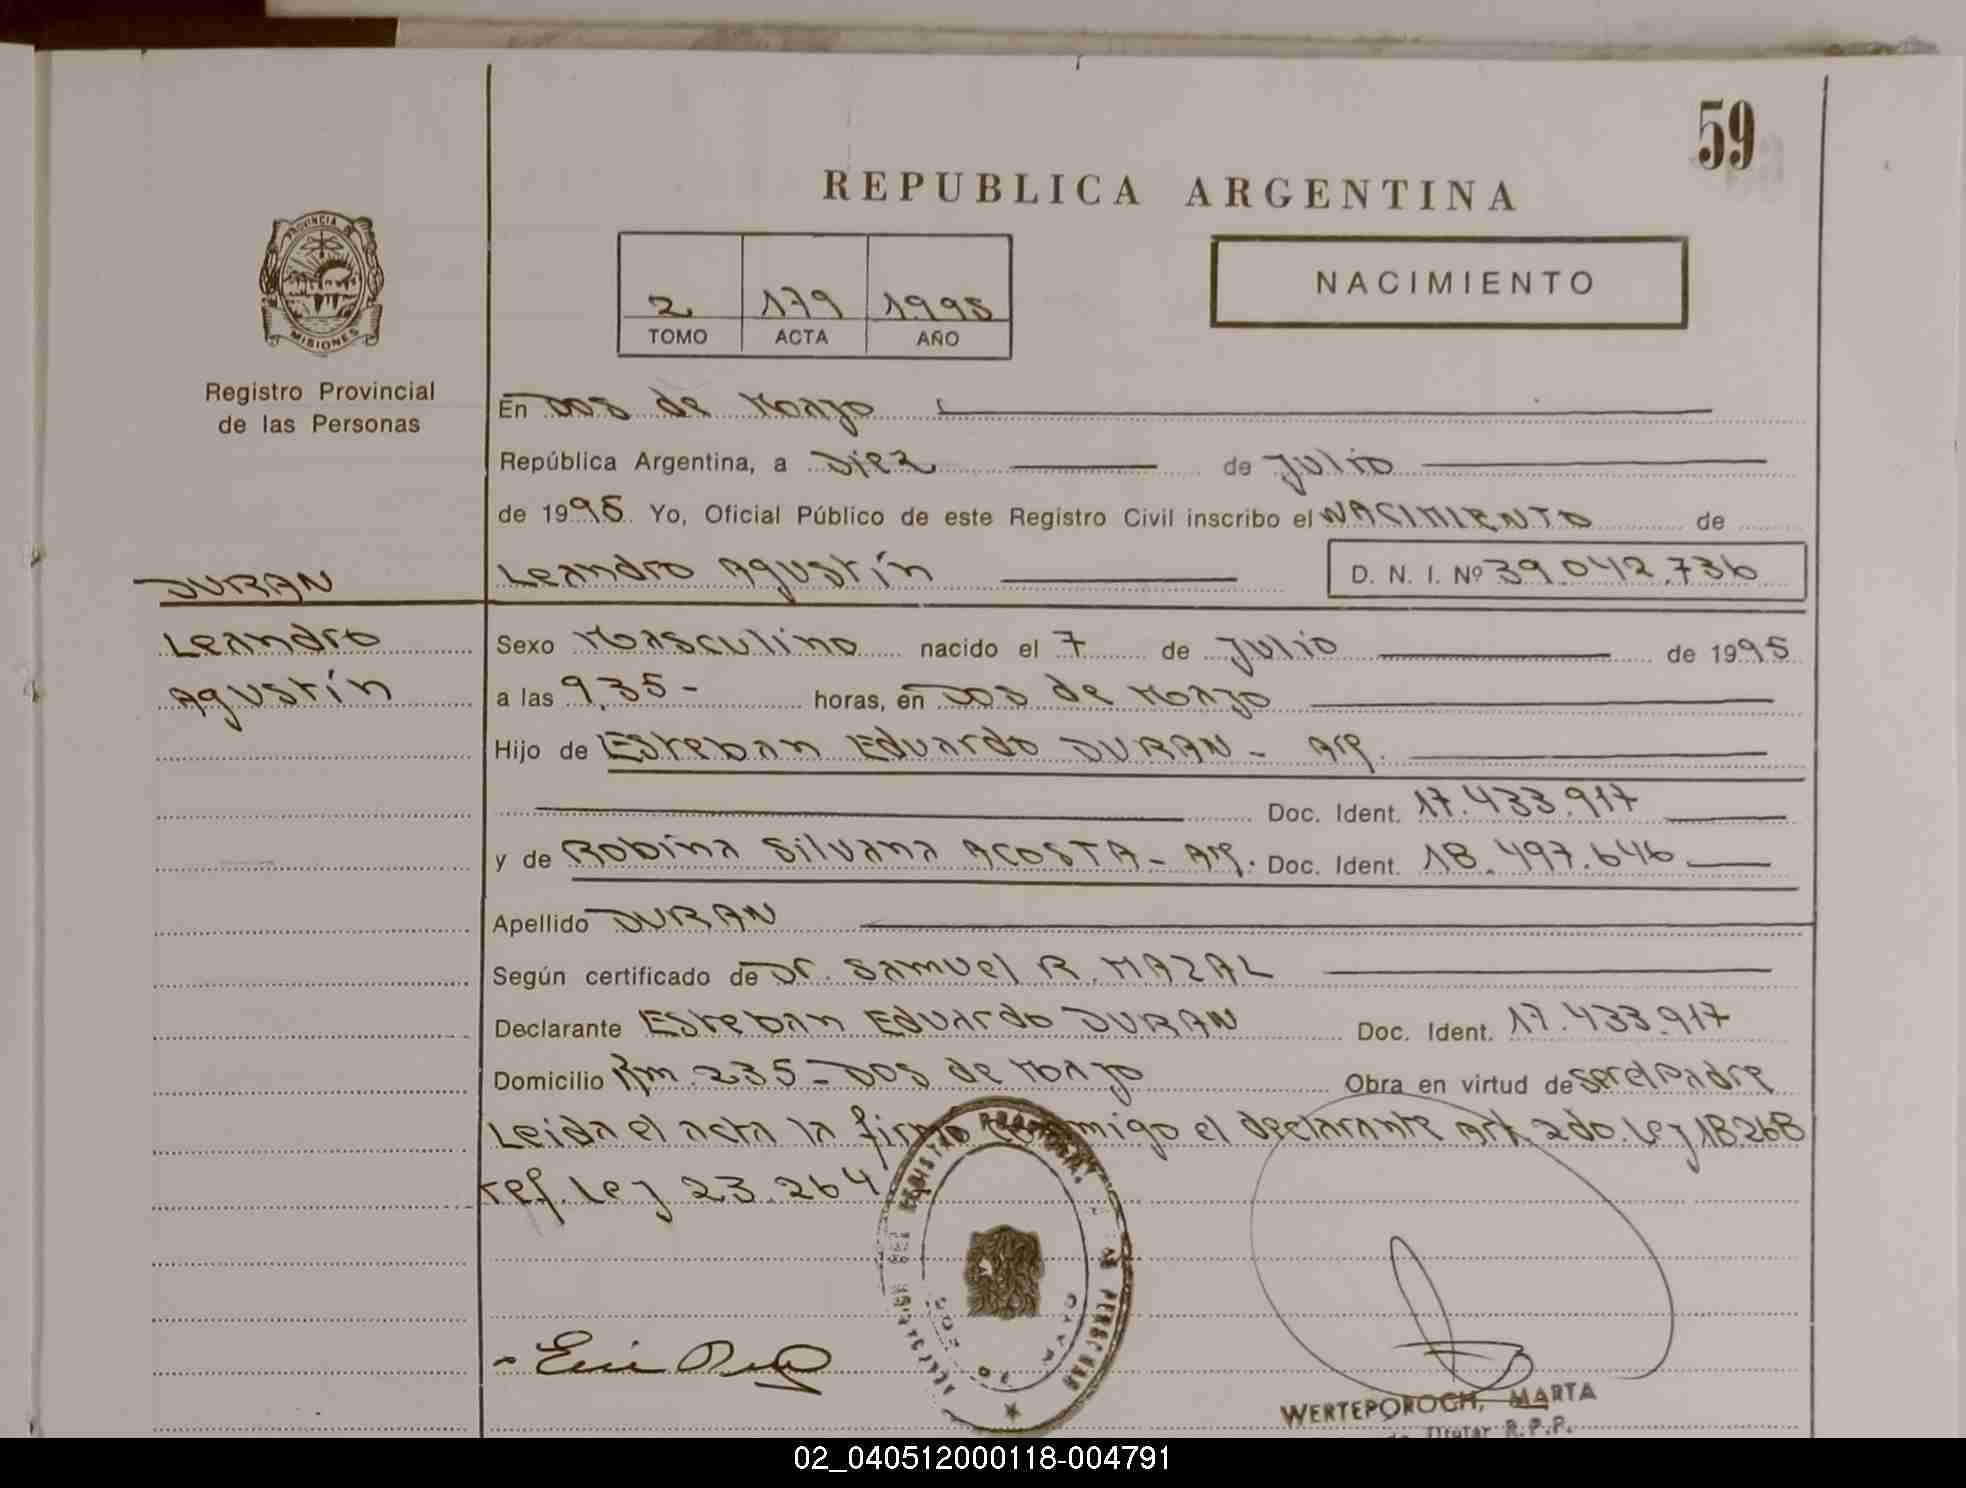 59
REPUBLICA ARGENTINA
PROVINCIA DE
MISIONES
Registro Provincial
de las Personas
2 179 1995
TOMO ACTA AÑO
NACIMIENTO
En Dos de Mayo
República Argentina, a Diez de Julio
de 1995 Yo, Oficial Público de este Registro Civil inscribo el NACIMIENTO de
Leandro Agustín D. N. I. Nº 39.042.736
DURAN
Leandro
Agustín
Sexo Masculino nacido el 7 de Julio de 1995
a las 9,35- horas, en Dos de Mayo
Hijo de Esteban Eduardo DURAN - Arg.
Doc. Ident. 17.433.917
y de Robina Silvana ACOSTA - Arg. Doc. Ident. 18.497.646
Apellido DURAN
Según certificado de Dr. Samuel R. MAZAL
Declarante Esteban Eduardo DURAN Doc. Ident. 17.433.917
Domicilio Km. 235 - Dos de Mayo Obra en virtud de ser el Padre
Leida el acta la firma conmigo el declarante Art. 2do. Ley 18268
ref. Ley 23.264
WERTEPOROCH, MARTA
Titular R.P.P.
02_040512000118-004791